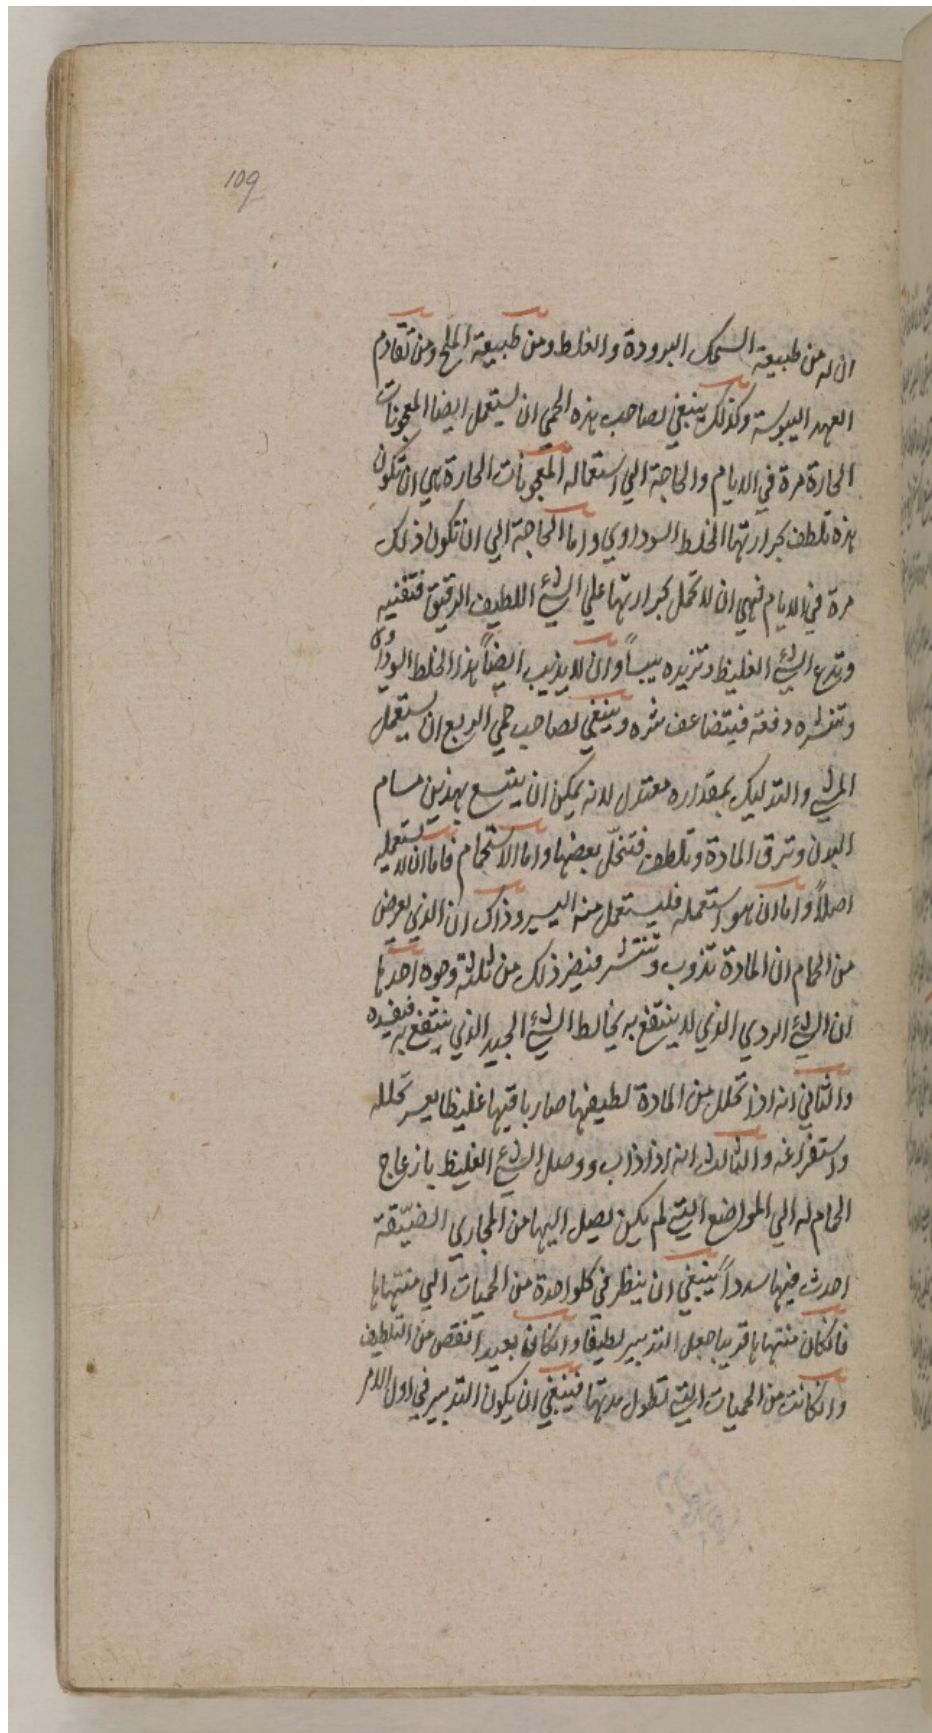 109
ان له من طبيعة السمك البرودة والغلظ ومن طبيعة الملح ومن تقادم
العهد اليبوسة وكذلك ينبغي لصاحب هذه الحمى ان يستعمل ايضا المعجونات
الحارة مرة في الايام والحاجة الي استعماله المعجونات الحارة هي ان تكون
هذه تلطف بحرارتها الخلط السوداوي واما الحاجة الي ان تكون ذلك
مرة في الايام فهي ان لا تحمل بحرارتها علي الشئ اللطيف الرقيق فتفنيه
وتدع الشئ الغليظ وتزيده يبساً وان لا يذيب ايضاً هذا الخلط السوداوي
وتنشره دفعة فيتضاعف شره وينبغي لصاحب حمي الربع ان يستعمل
المشي والتدليك بمقداره معتدل لانه يمكن ان يتسع بهذين مسام
البدن وترق المادة وتلطف فتنحلّ بعضها واما الاستحمام فاما ان لا يستعمله
اصلاً واما ان هو استعمله فليستعمل منه اليسير وذاك ان الذي يعرض
من الحمام ان المادة تذوب وتنتشر فيضر ذلك من ثلثة وجوه احدها
ان الشئ الردي الذي لا ينتفع به يخالط الشئ الجيد الذي ينتفع به فيفسده
والثاني انه اذا تحلل من المادة لطيفها صار باقيها غليظا يعسر تحلله
واستفراغه والثالث انه اذا ذاب ووصل الشئ الغليظ بازعاج
الحمام له الي المواضع التي لم يكن يصل اليها من المجاري الضيّقة
احدث فيها سدداً ينبغي ان ينظر في كلواحدة من الحميات الي منتهاها
فانكان منتهاها قريبا جعل التدبير لطيفا وانكان بعيدا نقص من التلطيف
وانكانت من الحميات التي تطول مدتها فينبغي ان يكون التدبير في اول الامر